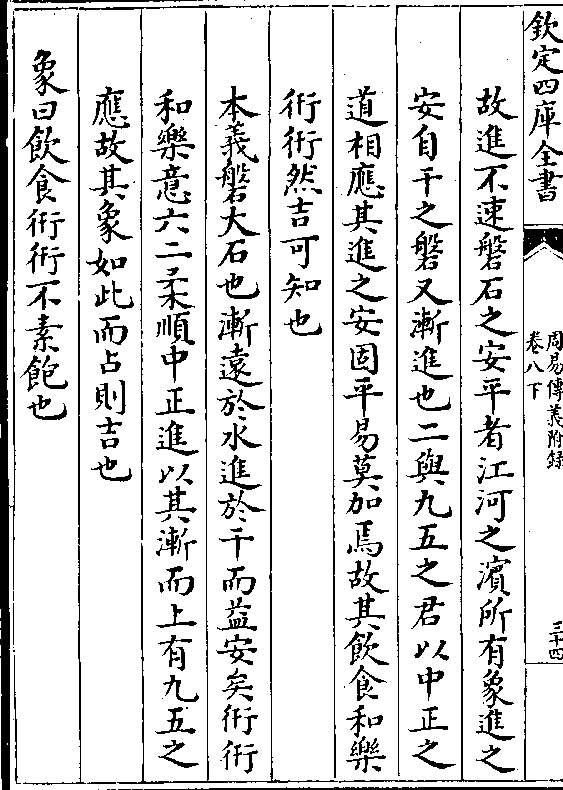 欽定四庫全書
周易傳義附録
卷八下
三十四
故進不速磐石之安平者江河之濵所有象進之
安自干之磐又漸進也二與九五之君以中正之
道相應其進之安固平易莫加焉故其飲食和樂
衎衎然吉可知也
本義磐大石也漸遠於水進於干而益安矣衎衎
和樂意六二柔順中正進以其漸而上有九五之
應故其象如此而占則吉也
象曰飲食衎衎不素飽也